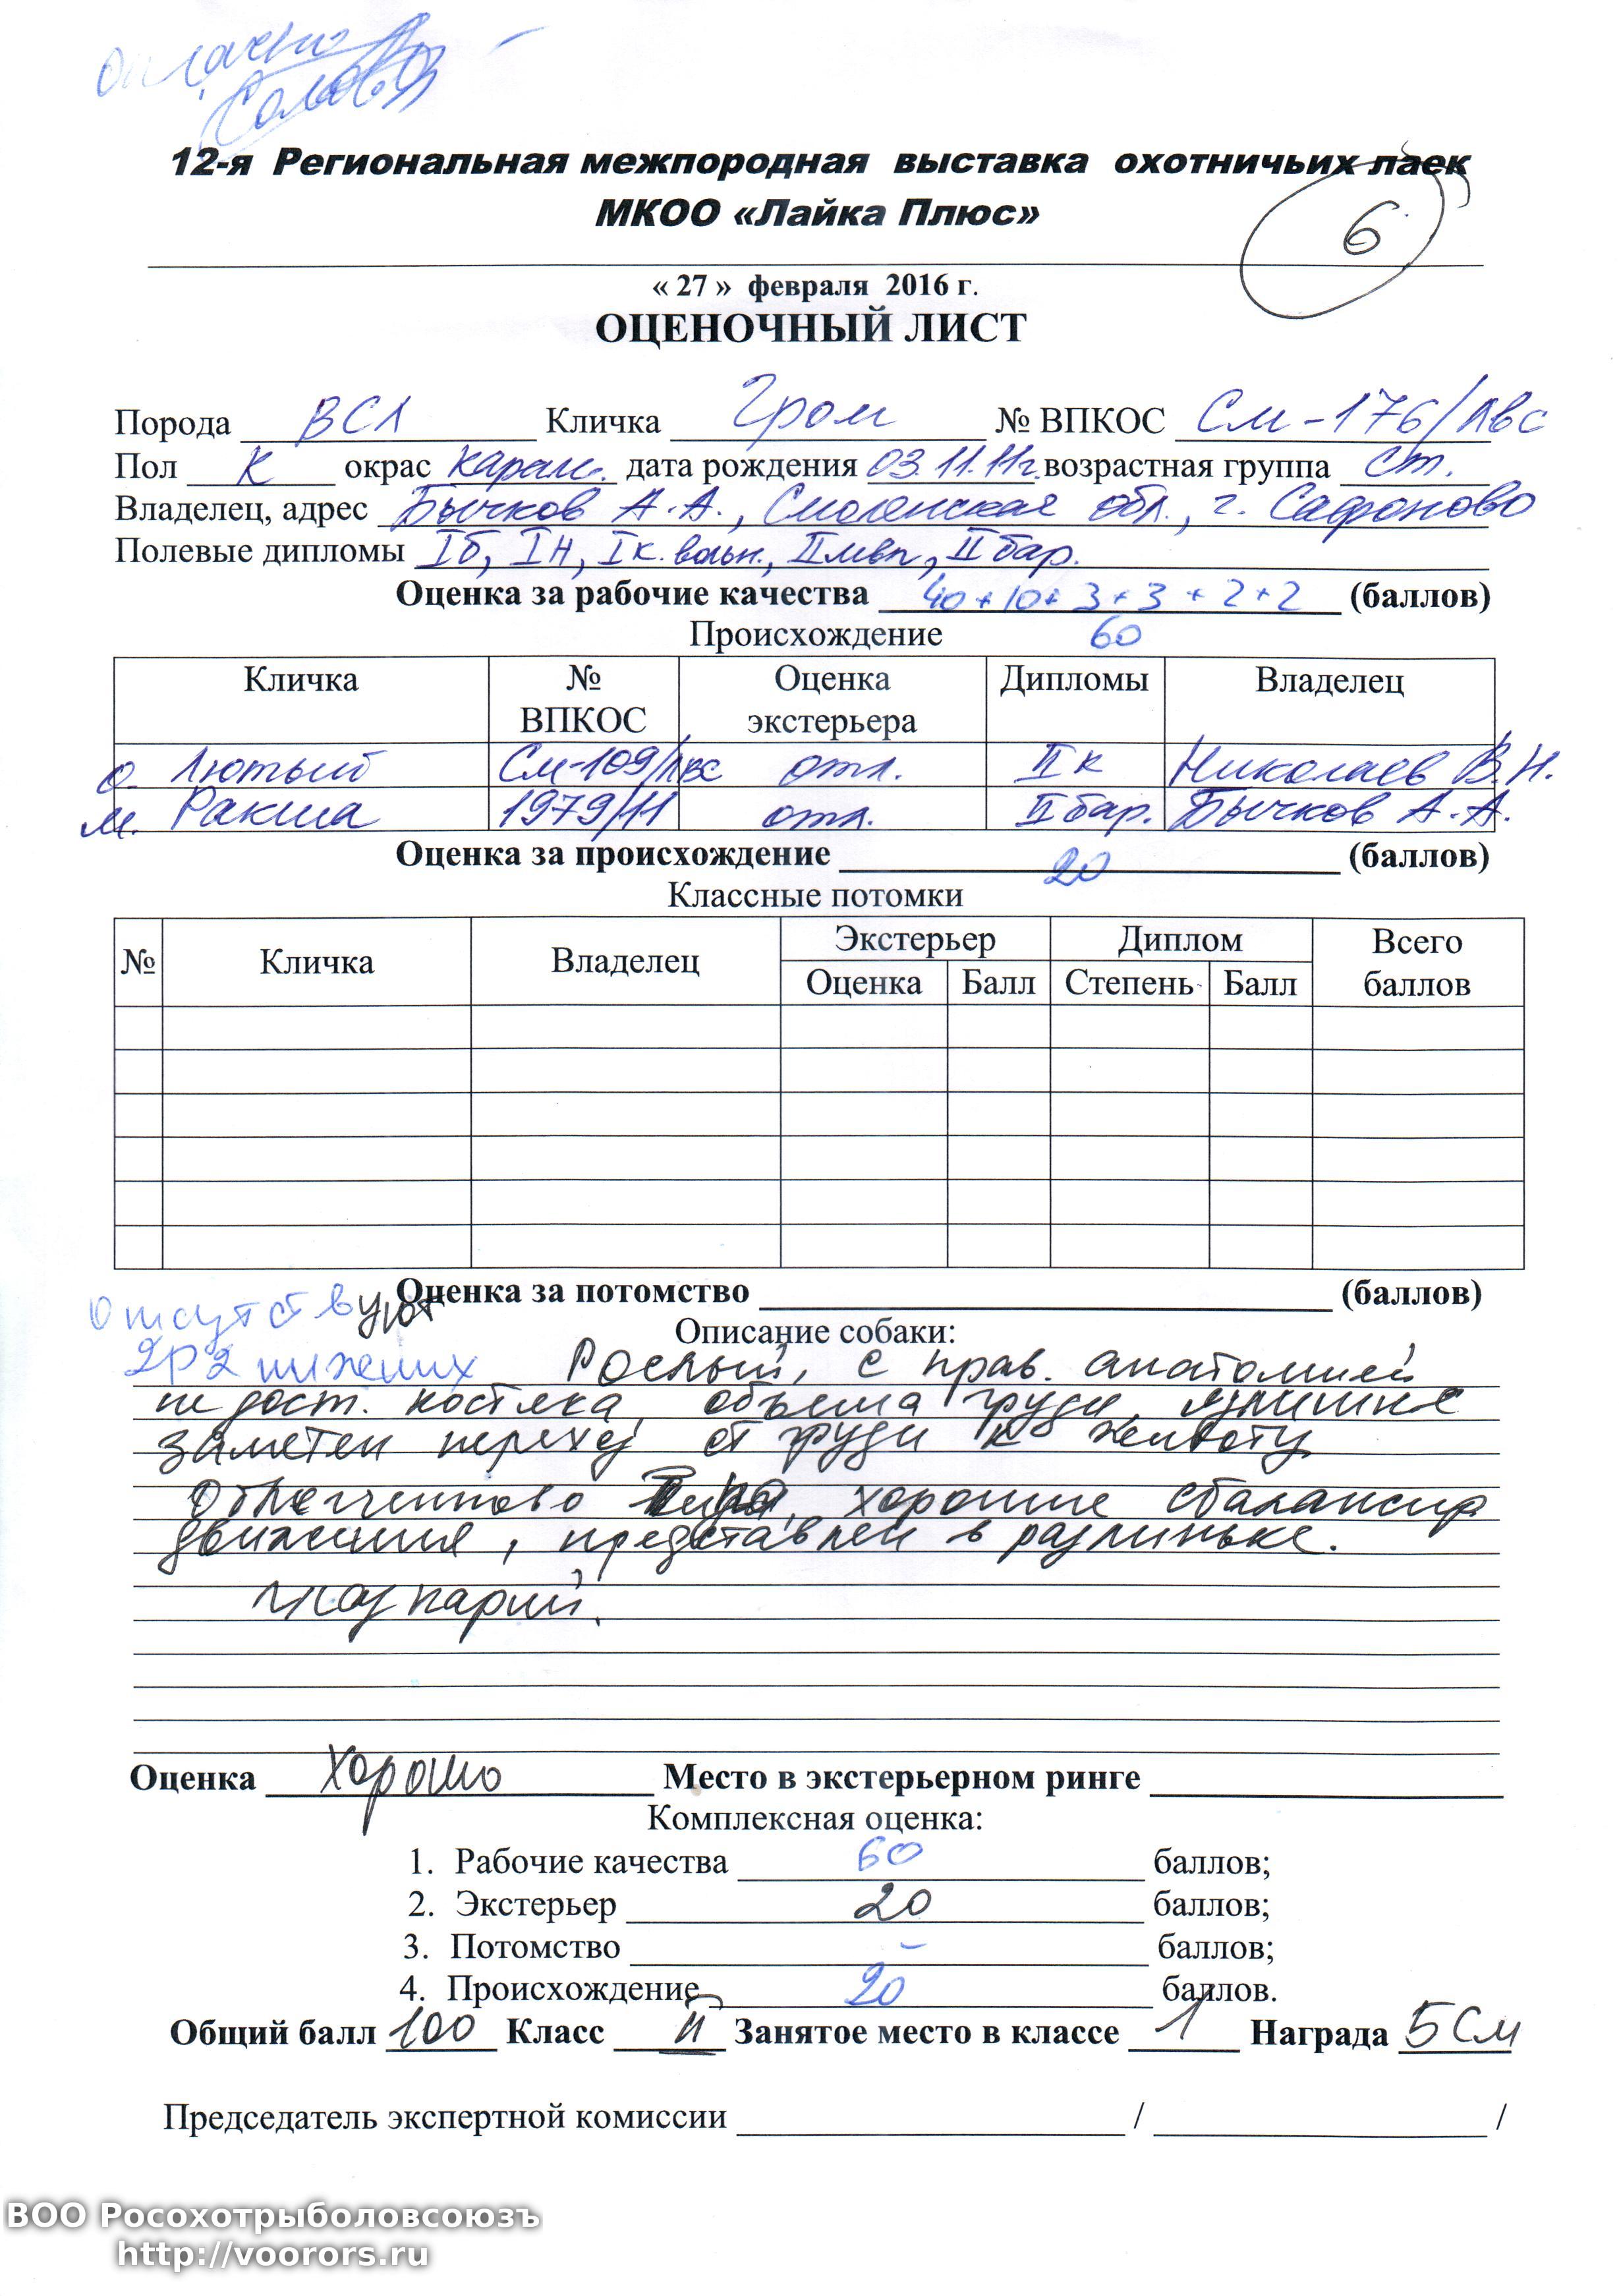 Оплачено
12-я Региональная межпородная выставка охотничьих лаек
МКОО «Лайка Плюс»
6
« 27 » февраля 2016 г.
ОЦЕНОЧНЫЙ ЛИСТ
Порода ВСЛ Кличка Гром № ВПКОС См-176/лвс
Пол К окрас карам. дата рождения 03.11.11г. возрастная группа ст.
Владелец, адрес Бычков А.А., Смоленская обл., г. Сафоново
Полевые дипломы Iб, Iн, Iк. вольн., IIмвп, II бар.
Оценка за рабочие качества 40+10+3+3+2+2 (баллов)
Происхождение 60
Кличка № ВПКОС Оценка экстерьера Дипломы Владелец
о. Лютый См-109/лвс отл. IIк Николаев В.Н.
м. Ракша 1979/11 отл. IIбар. Бычков А.А.
Оценка за происхождение 20 (баллов)
Классные потомки
№ Кличка Владелец Экстерьер Диплом Всего баллов
Оценка Балл Степень Балл
Оценка за потомство (баллов)
Отсутствуют
Описание собаки:
2Р2 нижних Рослый, с прав. анатомией
не дост. костяка, объема груди, излишне
заметен переход от груди к животу
Облегченного хорошие сбалансир
движения, представлен в разлиньке.
Оценка Хорошо Место в экстерьерном ринге
Комплексная оценка:
1. Рабочие качества 60 баллов;
2. Экстерьер 20 баллов;
3. Потомство – баллов;
4. Происхождение 20 баллов.
Общий балл 100 Класс II Занятое место в классе 1 Награда БСМ
Председатель экспертной комиссии / /
ВОО Росохотрыболовсоюзъ
http://voorors.ru